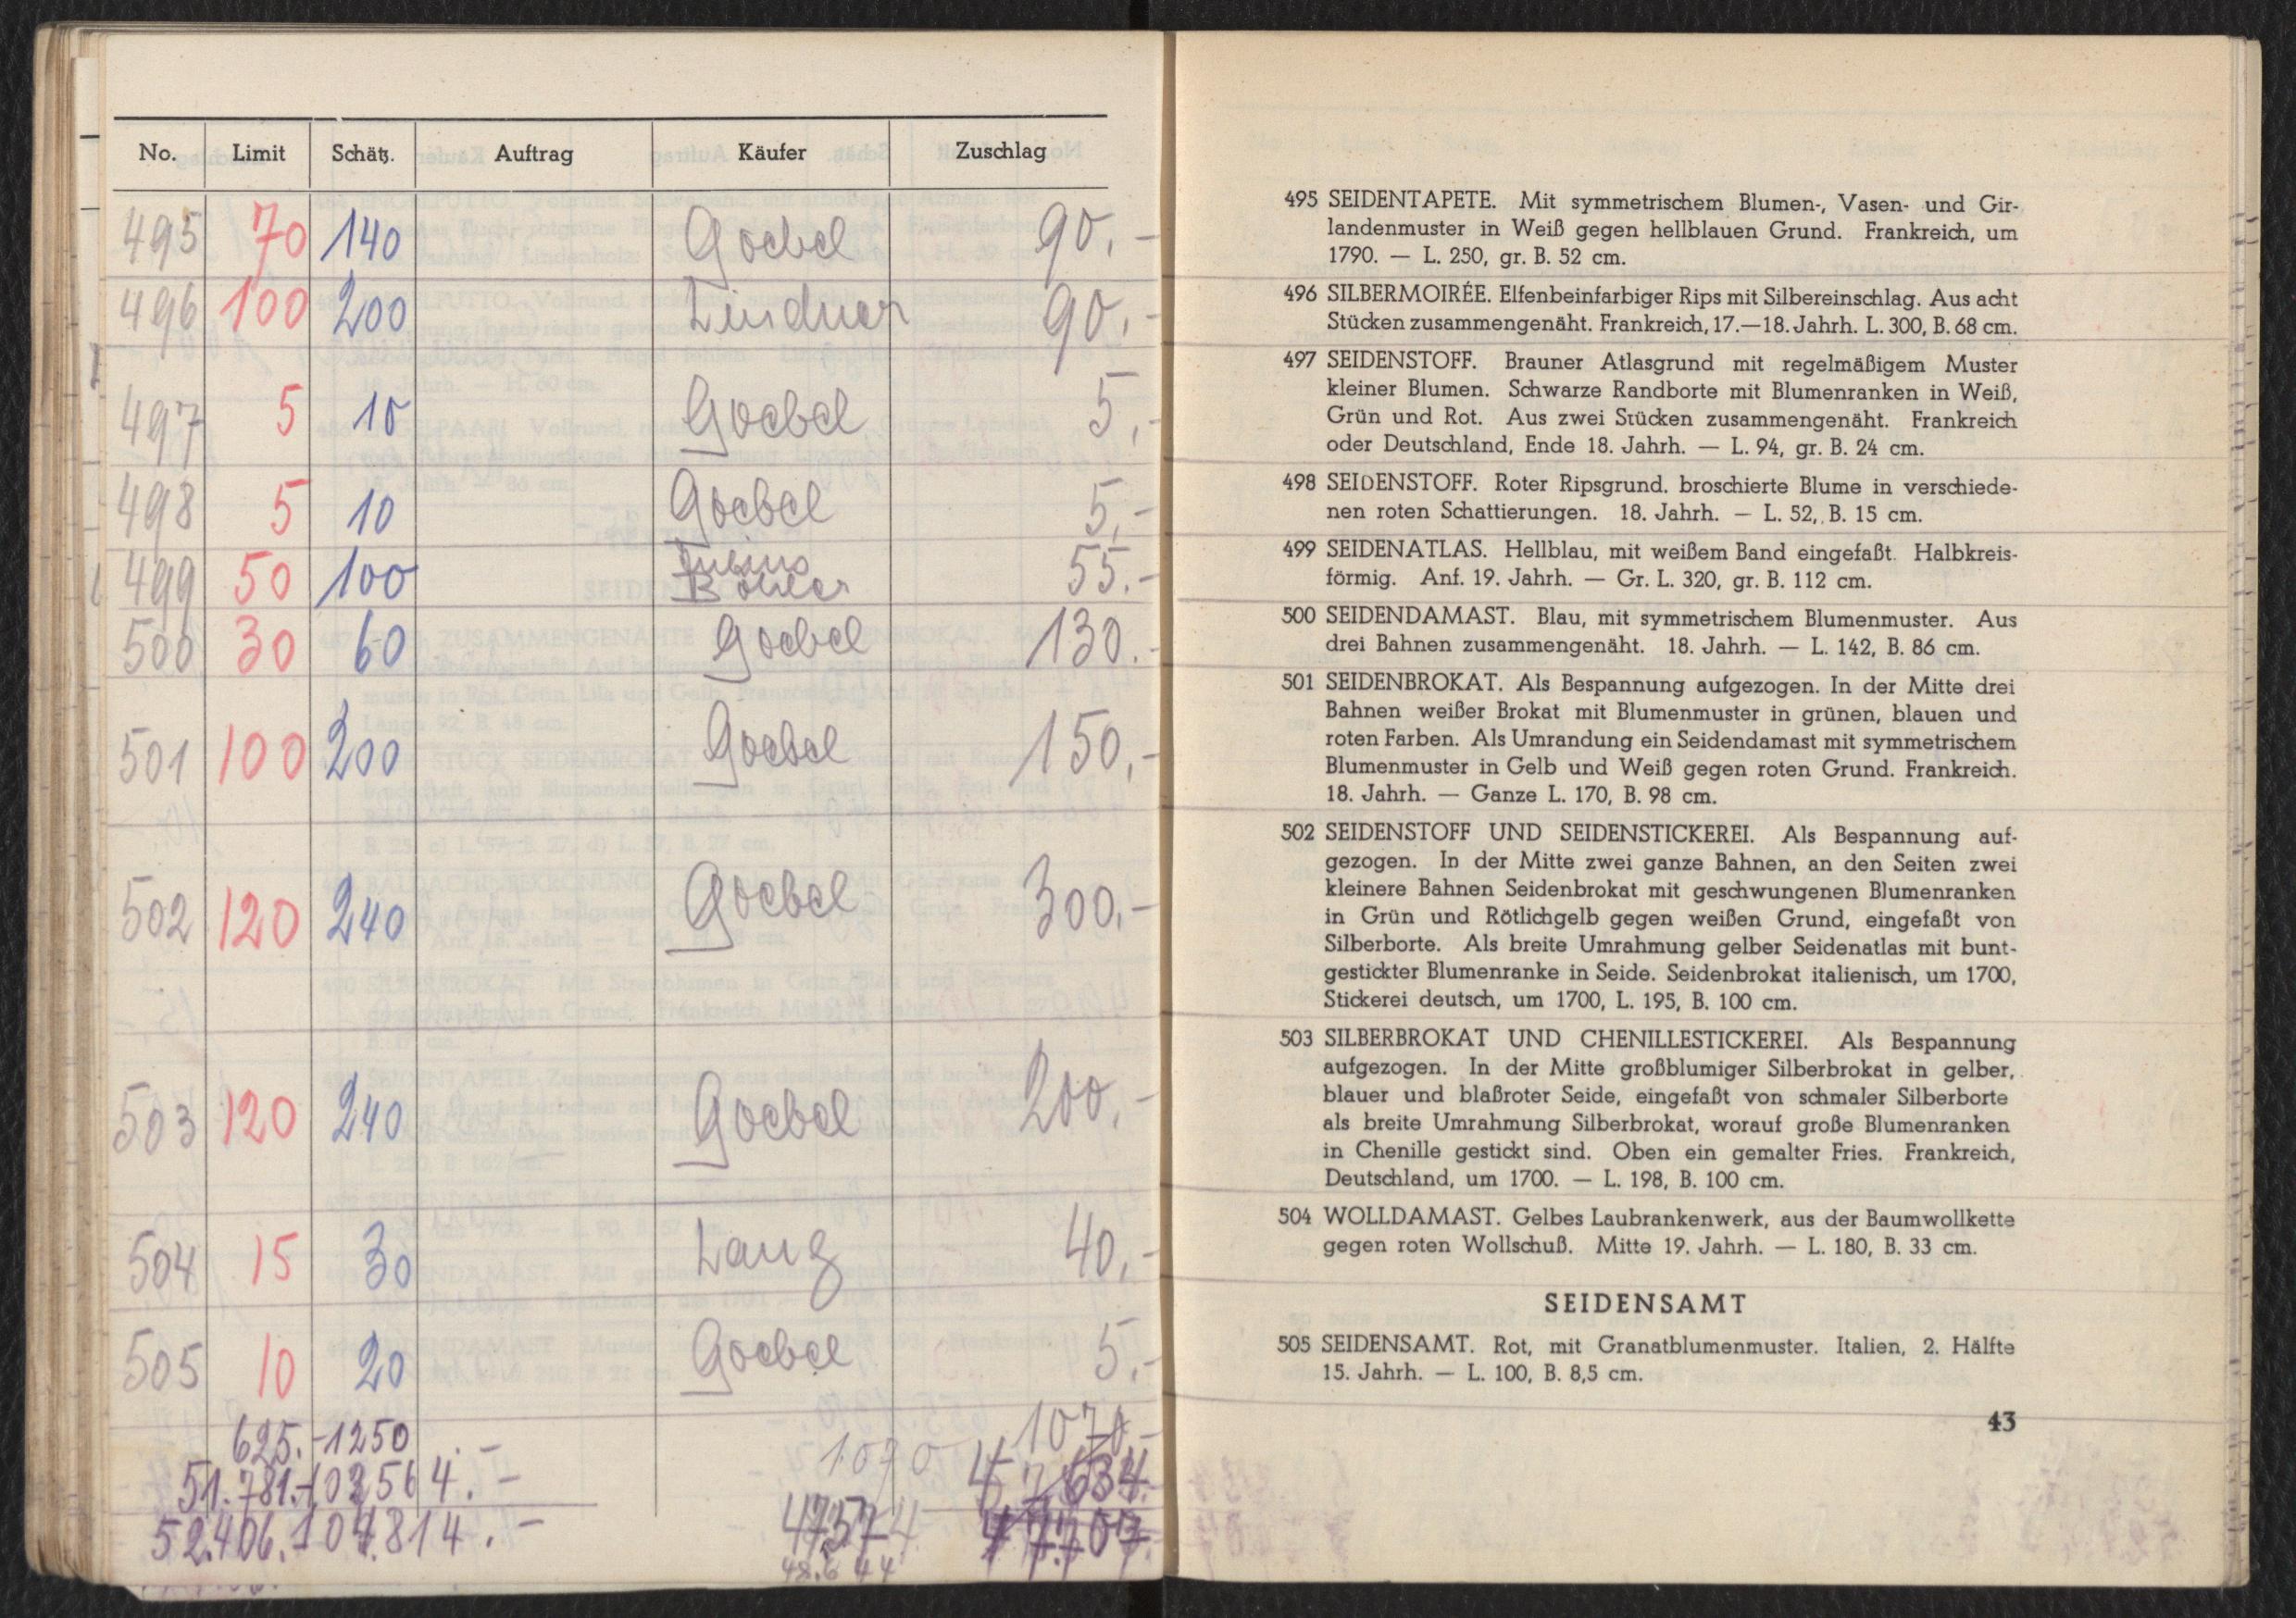 No. Limit Schätz. Auftrag Käufer Zuschlag
495 70 140 Goebel 90.-
496 100 200 Lindner 90.-
497 5 10 Goebel 5,-
498 5 10 Goebel 5.-
499 50 100 Julius Böhler 55.-
500 30 60 Goebel 130.-
501 100 200 Goebel 150,-
502 120 240 Goebel 300,-
503 120 240 Goebel 200,-
504 15 30 Lang 40,-
505 10 20 Goebel 5.-
625.- 1250 .- 1070 1070.-
51.781.- 103564.- 47634.-
52.406.- 104.814.- 47574
48.644
495 SEIDENTAPETE. Mit symmetrischem Blumen-, Vasen- und Gir-
landenmuster in Weiß gegen hellblauen Grund. Frankreich, um
1790. — L. 250, gr. B. 52 cm.
496 SILBERMOIRÉE. Elfenbeinfarbiger Rips mit Silbereinschlag. Aus acht
Stücken zusammengenäht. Frankreich, 17.—18. Jahrh. L. 300, B. 68 cm.
497 SEIDENSTOFF. Brauner Atlasgrund mit regelmäßigem Muster
kleiner Blumen. Schwarze Randborte mit Blumenranken in Weiß,
Grün und Rot. Aus zwei Stücken zusammengenäht. Frankreich
oder Deutschland, Ende 18. Jahrh. — L. 94, gr. B. 24 cm.
498 SEIDENSTOFF. Roter Ripsgrund. broschierte Blume in verschiede-
nen roten Schattierungen. 18. Jahrh. — L. 52, B. 15 cm.
499 SEIDENATLAS. Hellblau, mit weißem Band eingefaßt. Halbkreis-
förmig. Anf. 19. Jahrh. — Gr. L. 320, gr. B. 112 cm.
500 SEIDENDAMAST. Blau, mit symmetrischem Blumenmuster. Aus
drei Bahnen zusammengenäht. 18. Jahrh. — L. 142, B. 86 cm.
501 SEIDENBROKAT. Als Bespannung aufgezogen. In der Mitte drei
Bahnen weißer Brokat mit Blumenmuster in grünen, blauen und
roten Farben. Als Umrandung ein Seidendamast mit symmetrischem
Blumenmuster in Gelb und Weiß gegen roten Grund. Frankreich.
18. Jahrh. — Ganze L. 170, B. 98 cm.
502 SEIDENSTOFF UND SEIDENSTICKEREI. Als Bespannung auf-
gezogen. In der Mitte zwei ganze Bahnen, an den Seiten zwei
kleinere Bahnen Seidenbrokat mit geschwungenen Blumenranken
in Grün und Rötlichgelb gegen weißen Grund, eingefaßt von
Silberborte. Als breite Umrahmung gelber Seidenatlas mit bunt-
gestickter Blumenranke in Seide. Seidenbrokat italienisch, um 1700,
Stickerei deutsch, um 1700, L. 195, B. 100 cm.
503 SILBERBROKAT UND CHENILLESTICKEREI. Als Bespannung
aufgezogen. In der Mitte großblumiger Silberbrokat in gelber,
blauer und blaßroter Seide, eingefaßt von schmaler Silberborte
als breite Umrahmung Silberbrokat, worauf große Blumenranken
in Chenille gestickt sind. Oben ein gemalter Fries. Frankreich,
Deutschland, um 1700. — L. 198, B. 100 cm.
504 WOLLDAMAST. Gelbes Laubrankenwerk, aus der Baumwollkette
gegen roten Wollschuß. Mitte 19. Jahrh. — L. 180, B. 33 cm.
SEIDENSAMT
505 SEIDENSAMT. Rot, mit Granatblumenmuster. Italien, 2. Hälfte
15. Jahrh. — L. 100, B. 8,5 cm.
43